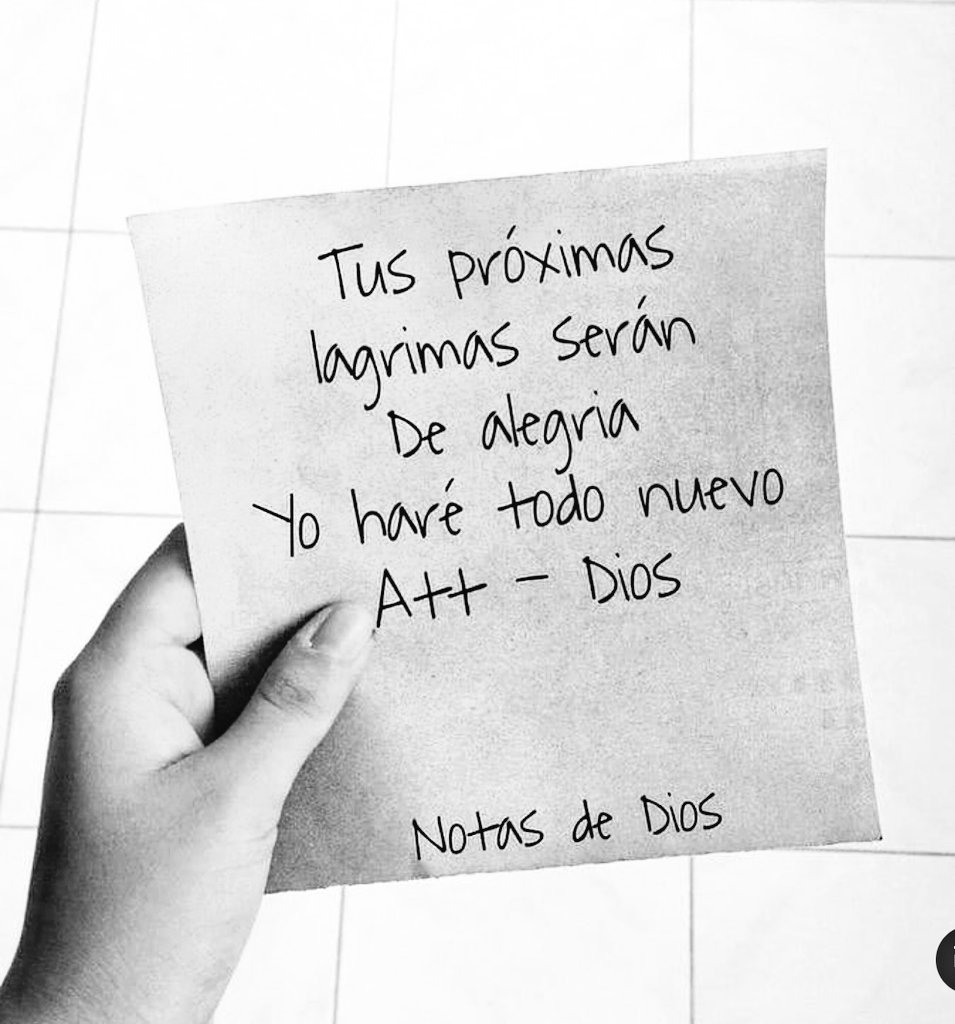 Tus próximas
lagrimas serán
De alegria
Yo haré todo nuevo
Att - Dios
Notas de Dios